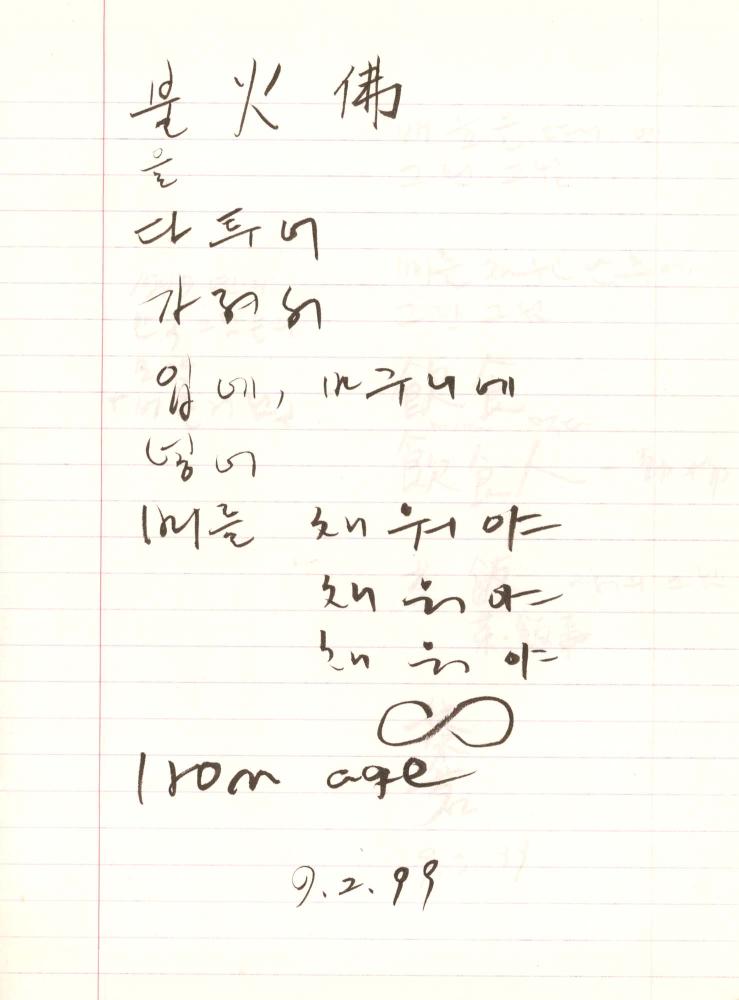 불 火 佛
을
다투어
가려서
입에, 바구니에
넣어
배를 채워야
채워야
채워야
∞
Iron age
9.2.99